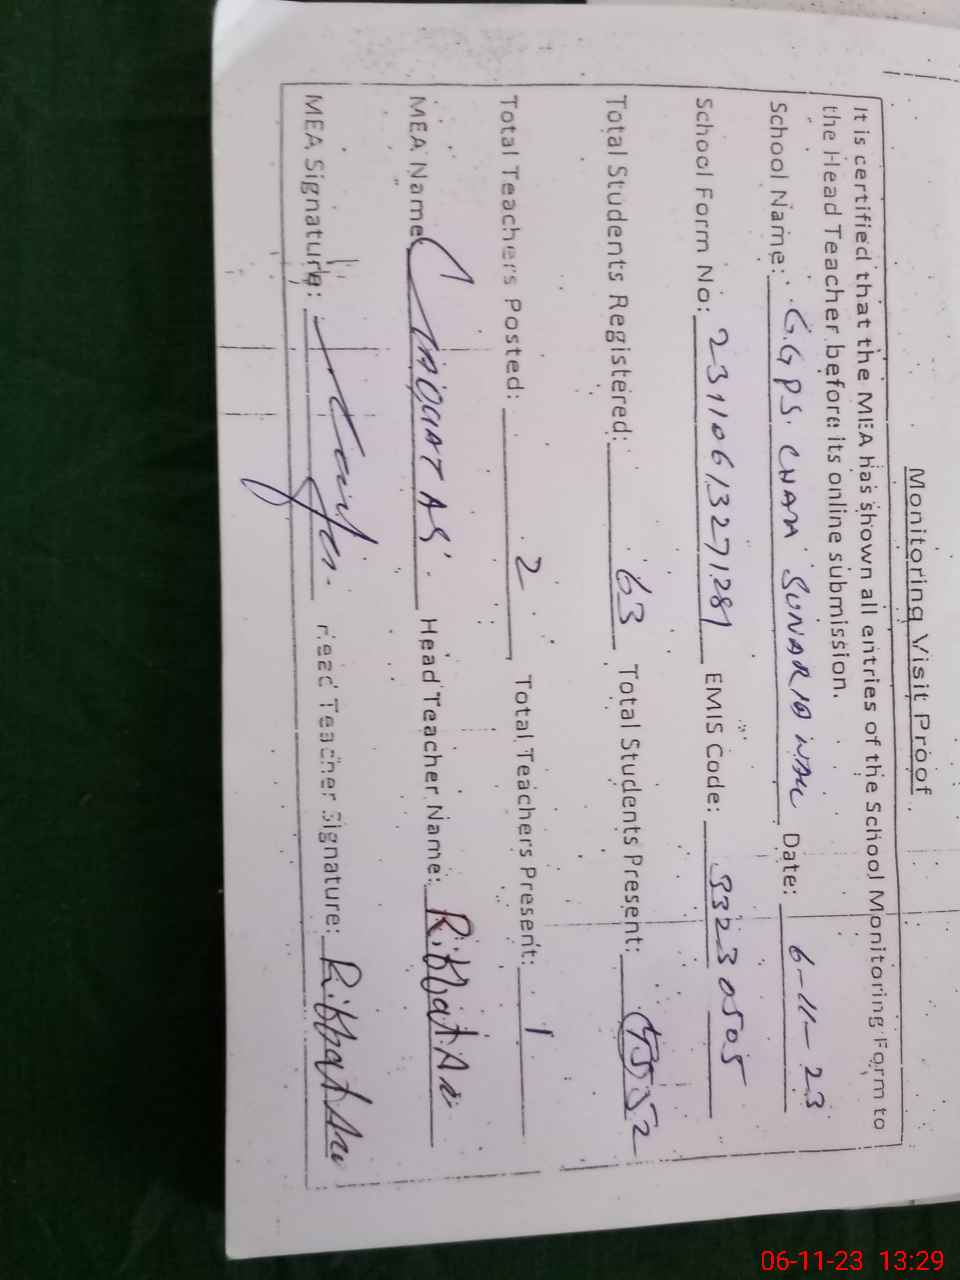 Monitoring Visit Proof
It is certified that the MEA has shown all entries of the School Monitoring Form to
the Head Teacher before its online submission.
School Name: G.G PS. CHAH SUNARIA WALI Date: 6-11-23
School Form No: 2311061327128 EMIS Code: 33230505
Total Students Registered: 63 Total Students Present: 52
Total Teachers Posted: 2 Total Teachers Present: 1
MEA Name Head Teacher Name: Riffat
MEA Signature: Head Teacher Signature: Riffat
06-11-23 13:29